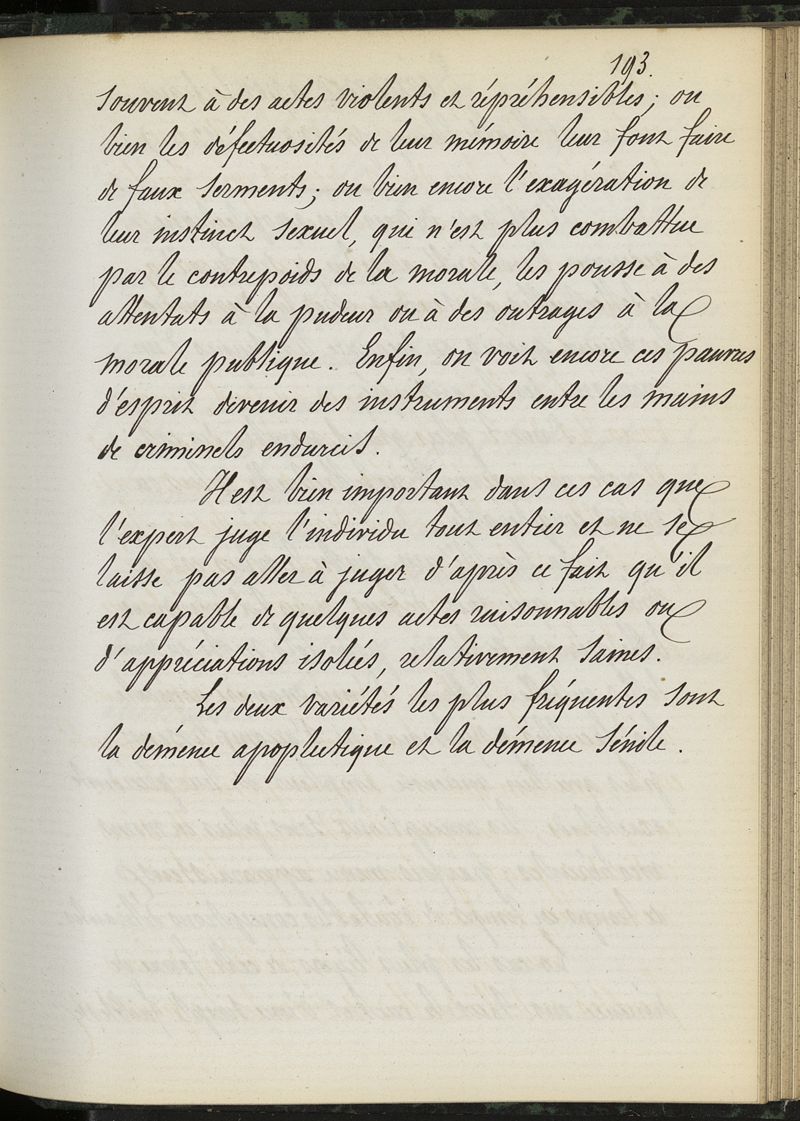 193.
souvent à des actes violents et répréhensibles; ou
bien les défectuosités de leur mémoire leur font faire
de faux serments; ou bien encore l'exagération de
leur instinct sexuel, qui n'est plus combattue
par le contrepoids de la morale, les pousse à des
attentats à la pudeur ou à des outrages à la
morale publique. Enfin, on voit encore ces pauvres
d'esprit devenir des instruments entre les mains
de criminels endurcis.
Il est bien important dans ces cas que
l'expert juge l'individu tout entier et ne se
laisse pas aller à juger d'après ce fait qu'il
est capable de quelques actes raisonnables ou
d'appréciations isolées, relativement saines.
Les deux variétés les plus fréquentes sont
la démence apoplectique et la démence sénile.